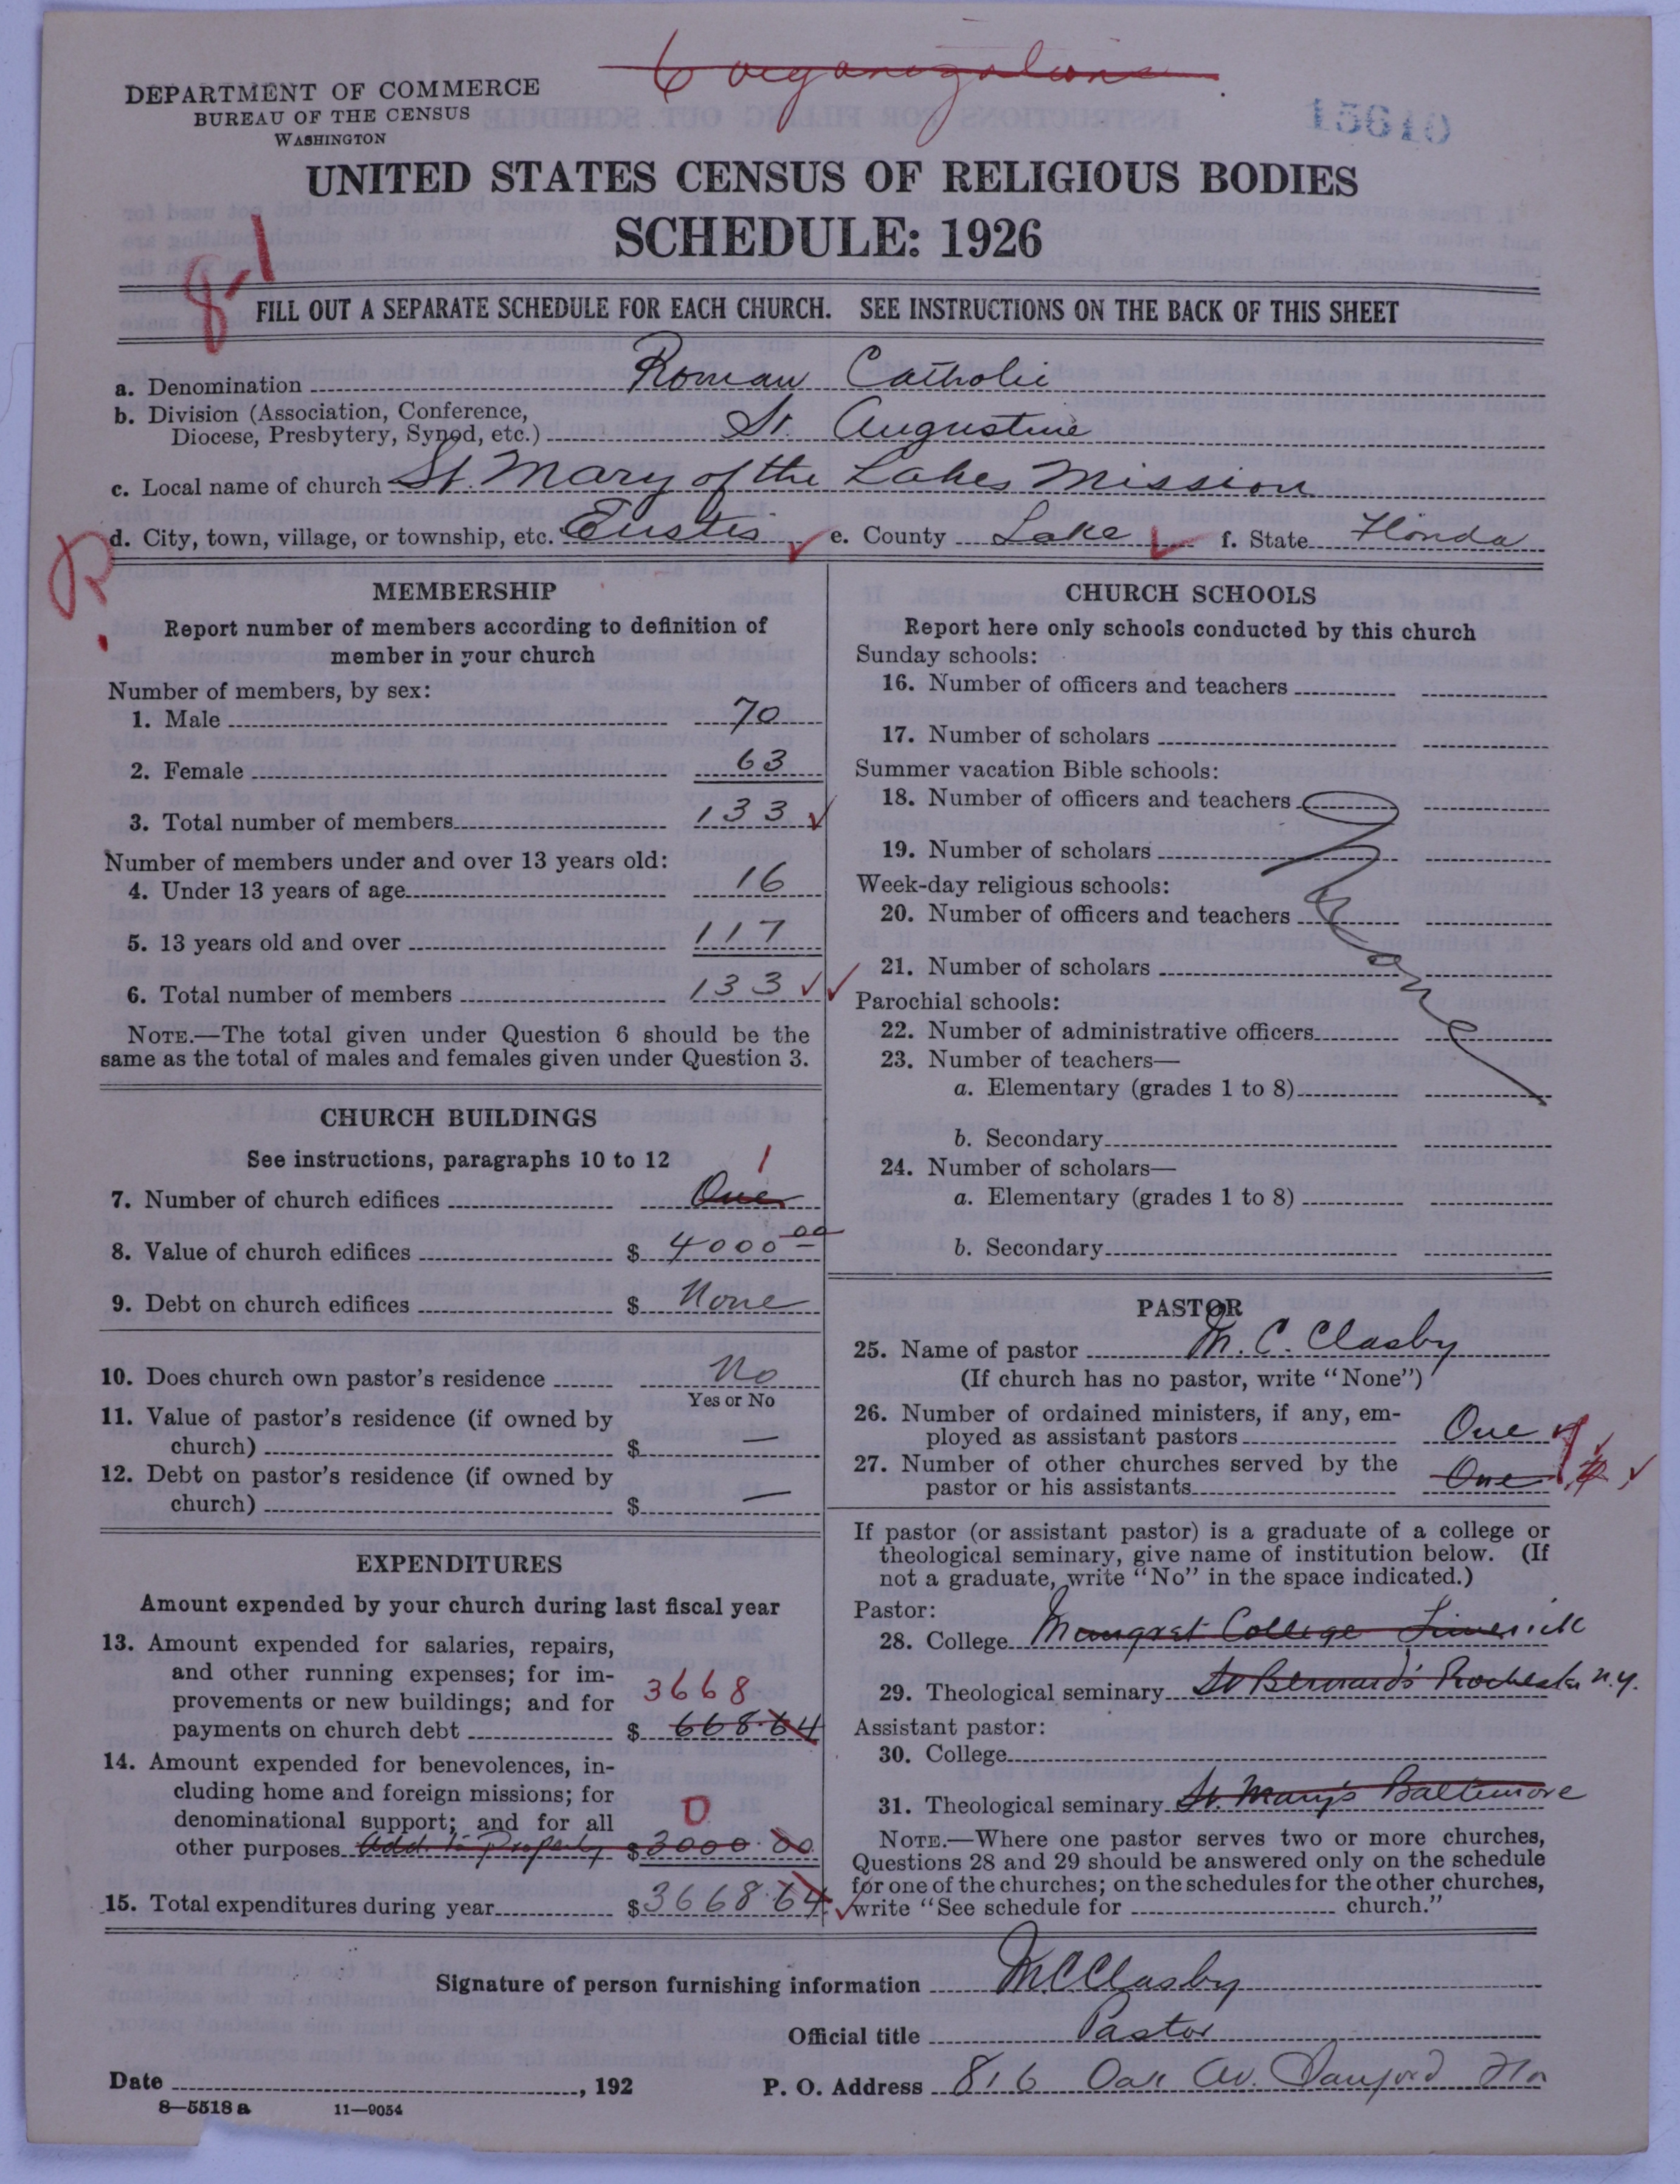 6 organizations.
DEPARTMENT OF COMMERCE
BUREAU OF THE CENSUS
WASHINGTON
UNITED STATES CENSUS OF RELIGIOUS BODIES
SCHEDULE: 1926
8-1
FILL OUT A SEPARATE SCHEDULE FOR EACH CHURCH. SEE INSTRUCTIONS ON THE BACK OF THIS SHEET
a. Denomination Roman Catholic
b. Division (Association, Conference,
Diocese, Presbytery, Synod, etc.) St. Augustine
c. Local name of church St. Mary of the Lakes Mission
d. City, town, village, or township, etc. Eustis e. County Lake f. State Florida
R
MEMBERSHIP
Report number of members according to definition of
member in your church
Number of members, by sex:
1. Male 70
2. Female 63
3. Total number of members 133
Number of members under and over 13 years old:
4. Under 13 years of age 16
5. 13 years old and over 117
6. Total number of members 133
NOTE.—The total given under Question 6 should be the
same as the total of males and females given under Question 3.
CHURCH BUILDINGS
See instructions, paragraphs 10 to 12
1
7. Number of church edifices One
8. Value of church edifices $ 4000 00
9. Debt on church edifices $ None
10. Does church own pastor's residence No
Yes or No
11. Value of pastor's residence (if owned by
church) $ —
12. Debt on pastor's residence (if owned by
church) $ —
EXPENDITURES
Amount expended by your church during last fiscal year
13. Amount expended for salaries, repairs,
and other running expenses; for im-
provements or new buildings; and for 3668
payments on church debt $ 668.64
14. Amount expended for benevolences, in-
cluding home and foreign missions; for
denominational support; and for all 0
other purposes Add. to Property $ 3000.00
15. Total expenditures during year $ 3668.64
CHURCH SCHOOLS
Report here only schools conducted by this church
Sunday schools:
16. Number of officers and teachers
17. Number of scholars
Summer vacation Bible schools:
18. Number of officers and teachers
19. Number of scholars
Week-day religious schools:
20. Number of officers and teachers
None
21. Number of scholars
Parochial schools:
22. Number of administrative officers
23. Number of teachers—
a. Elementary (grades 1 to 8)
b. Secondary
24. Number of scholars—
a. Elementary (grades 1 to 8)
b. Secondary
PASTOR
25. Name of pastor M. C. Clasby
(If church has no pastor, write "None")
26. Number of ordained ministers, if any, em-
ployed as assistant pastors One
27. Number of other churches served by the
pastor or his assistants One
If pastor (or assistant pastor) is a graduate of a college or
theological seminary, give name of institution below. (If
not a graduate, write "No" in the space indicated.)
Pastor:
28. College Mungret College Limerick
29. Theological seminary St Bernard's Rochester N.Y.
Assistant pastor:
30. College
31. Theological seminary St. Mary's Baltimore
NOTE.—Where one pastor serves two or more churches,
Questions 28 and 29 should be answered only on the schedule
for one of the churches; on the schedules for the other churches,
write "See schedule for church."
Signature of person furnishing information M.C Clasby
Official title Pastor
Date , 192 P. O. Address 816 Oak Av. Sanford Fla
8—5518 a 11—9054